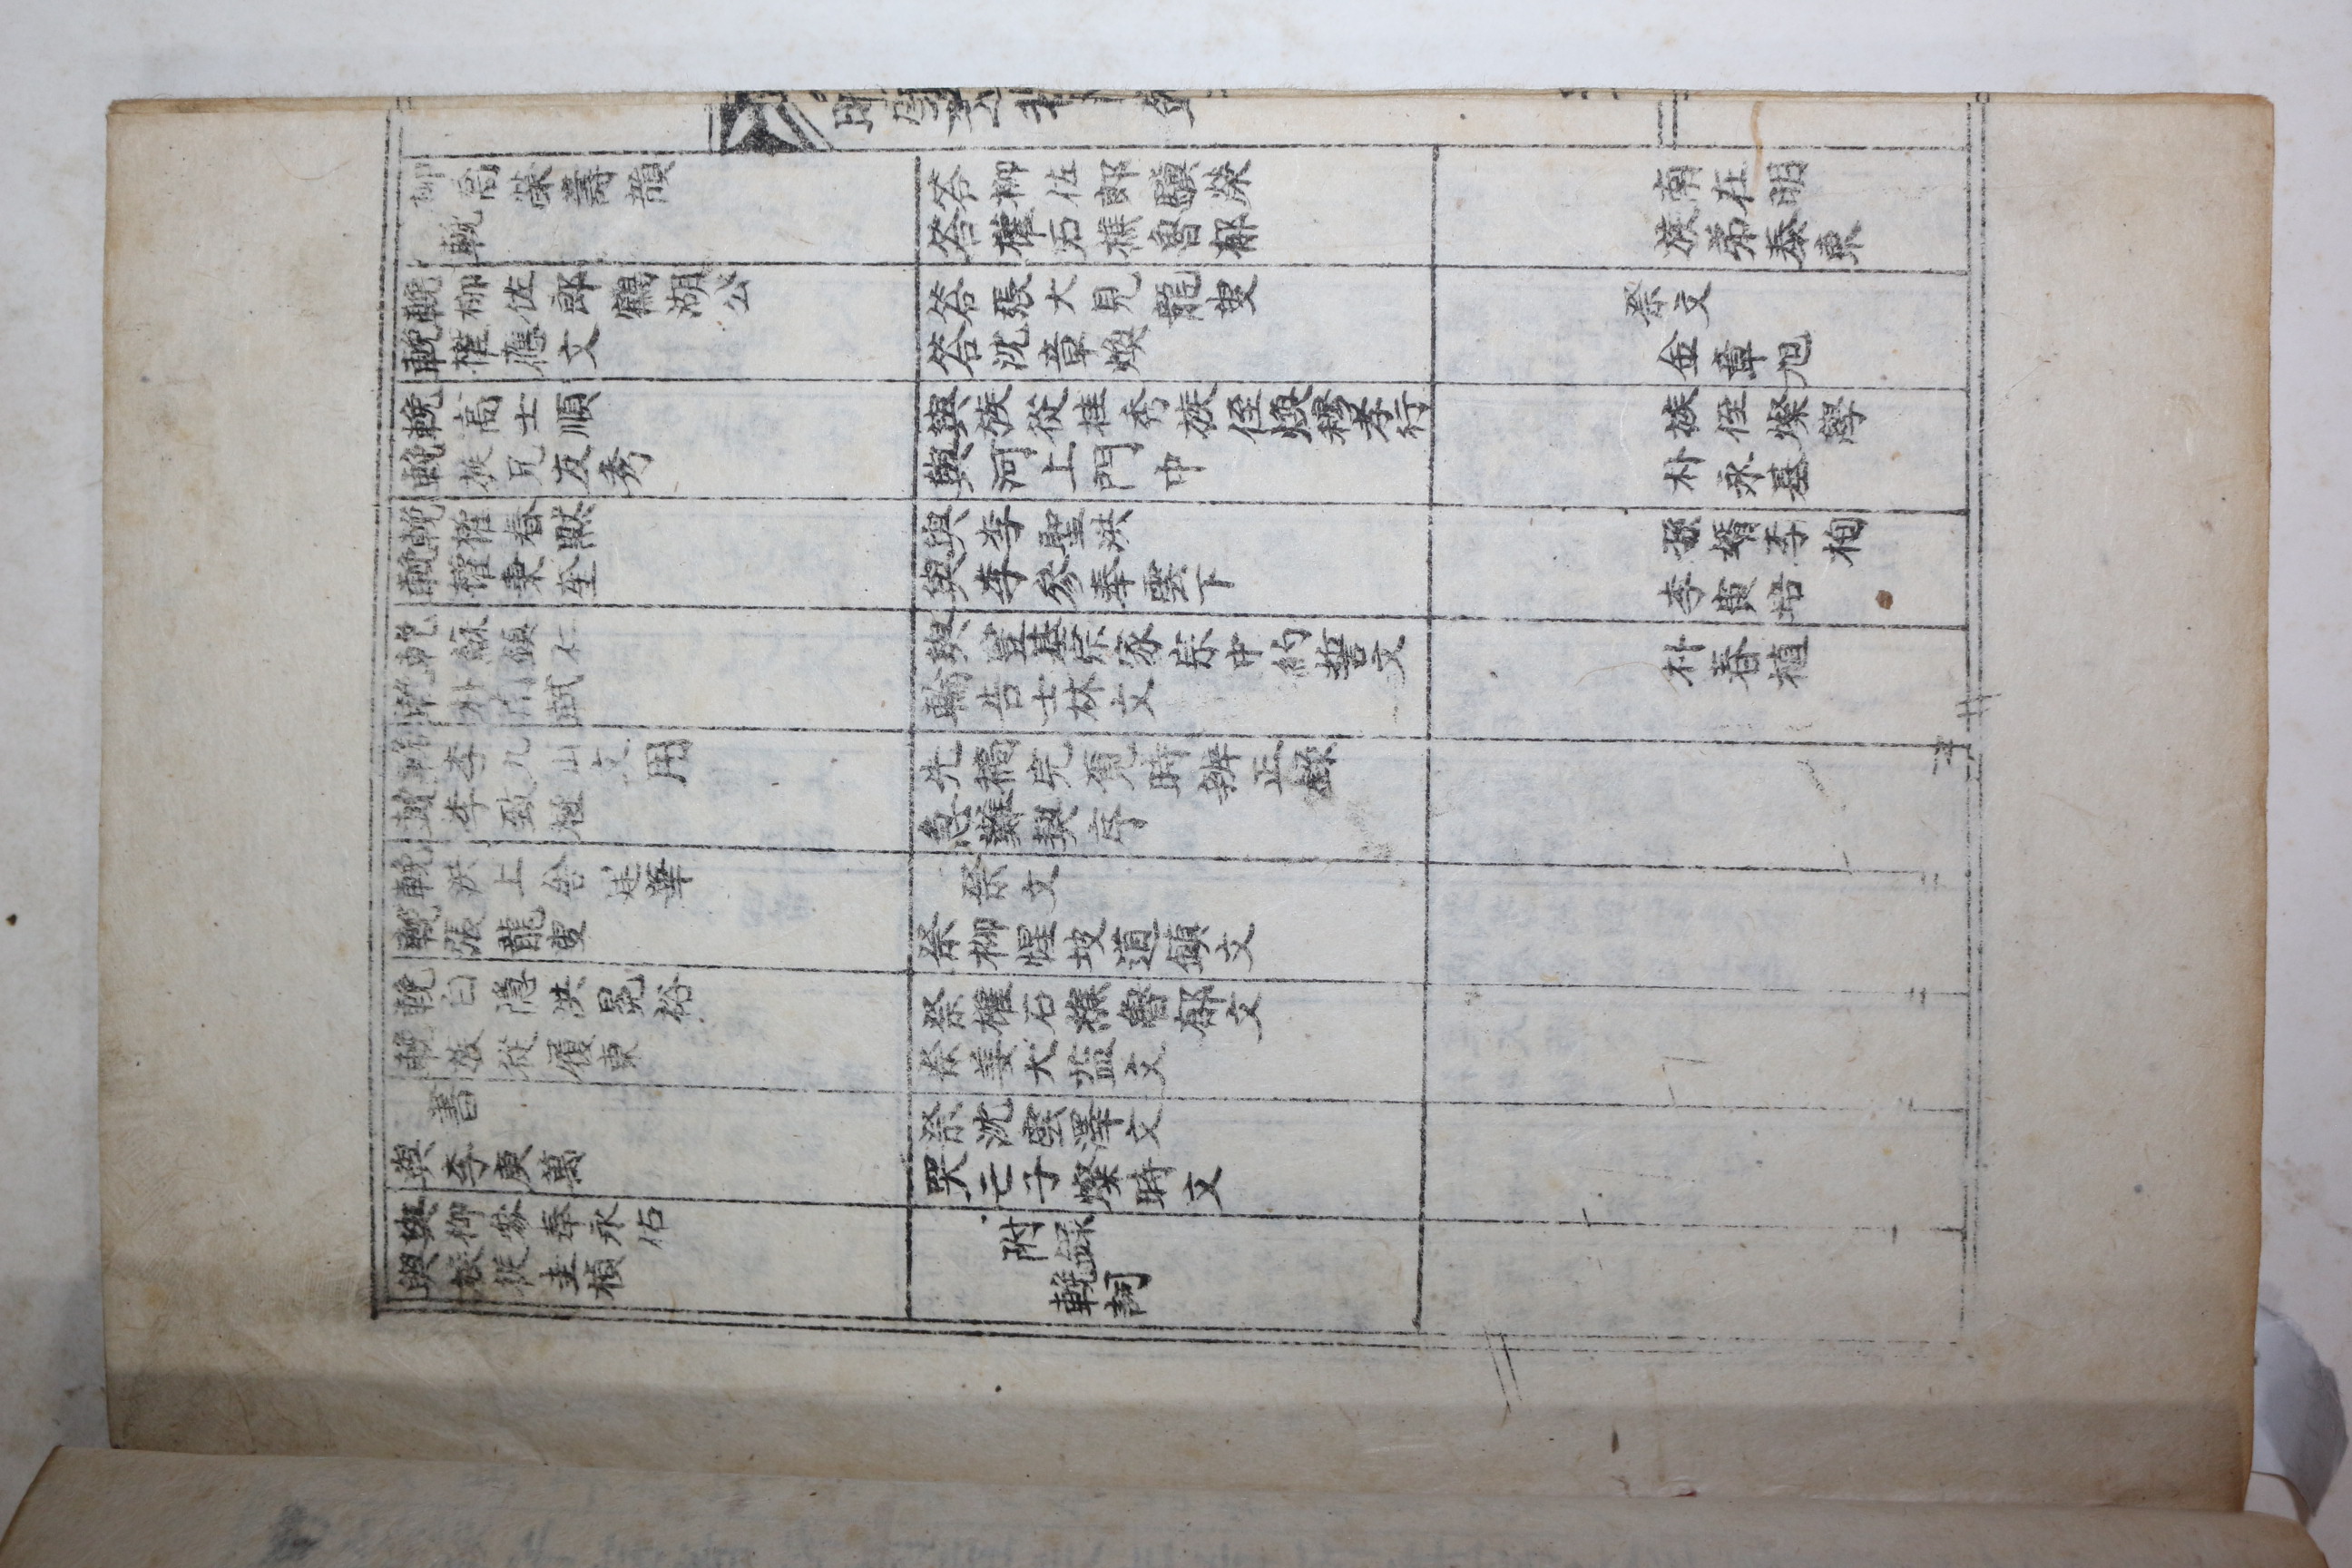 柳高榮壽韻
輓
輓柳佐郎鶴湖公
輓權應文
輓高士順
輓族兄友秀
輓權春黙
輓權秉奎
輓蘇鎮仁
輓朴南軾
輓李九山文用
輓李致極
輓洪上舍建華
輓張龍叟
輓白隱洪冕裕
輓族從履東
書
與李庚萬
與柳參奉永佑
與族從圭楨
答柳佐郎驥榮
答權石樵魯郁
答張大見龍叟
答沈章煥
與族從桂秀族侄煥穆孝行
與河上門中
與李聖洪
與李參奉雲下
與登基宗家宗中約誓文
輪告士林文
先稿完覓時辨正錄
急難契序
祭文
祭柳惺坡道鎮文
祭權石樵魯郁文
祭姜大益文
祭沈雲澤文
哭亡子燦時文
附錄
輓詞
南在明
族弟泰東
祭文
金章旭
族侄燦學
朴永基
孫婿李栒
李寅培
朴春植
二